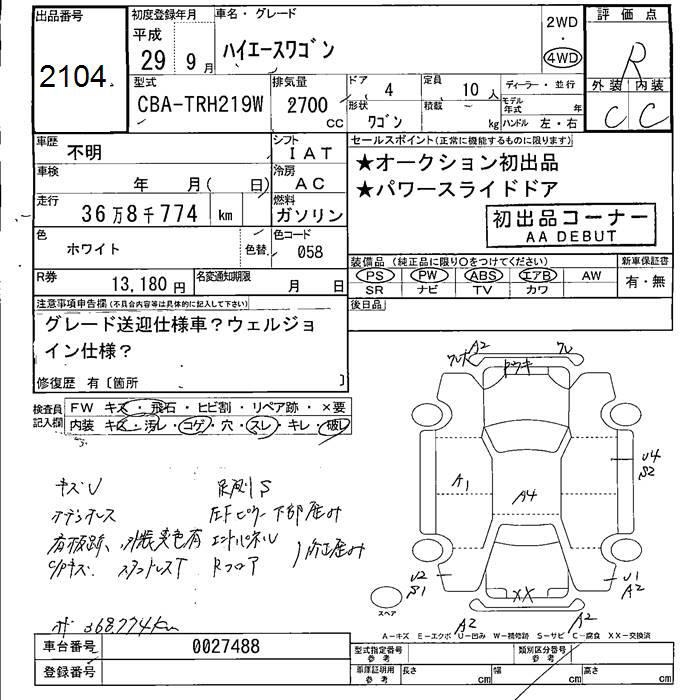 出品番号
2104.
初度登録年月
平成
29 9月
車名・グレード
ハイエースワゴン
2WD
・
4WD
評価点
R
外装 内装
C C
型式
CBA-TRH219W
排気量
2700
CC
ドア
4
定員
10人
形状
ワゴン
積載
kg
ディーラー・並行
モデル年式 年
ハンドル 左・右
車歴
不明
シフト
IAT
車検
年 月( 日)
冷房
AC
走行
36万8千774 km
燃料
ガソリン
色
ホワイト
色替
色コード
058
R券
13,180円
名変通知期限
月 日
セールスポイント(正常に機能するものに限ります)
★オークション初出品
★パワースライドドア
初出品コーナー
AA DEBUT
装備品(純正品に限り○をつけてください)
新車保証書
PS PW ABS エアB AW
SR ナビ TV カワ
有・無
後日品
注意事項申告欄(不具合内容等は具体的に記入して下さい)
グレード送迎仕様車?ウェルジョ
イン仕様?
修復歴 有〔箇所 〕
検査員記入欄
FW キズ・飛石・ヒビ割・リペア跡・×要
内装 キズ・汚レ・コゲ・穴・スレ・キレ・破レ
キズU
足廻りS
左Fピラー下部歪み
看板跡、外装変色有
Rフロア
修正歪み
368,774km
A2
A1
A4
U4
S2
U2
S1
U1
A2
XX
A2
A2
スペア
A-キズ E-エクボ U-凹み W-補修跡 S-サビ C-腐食 XX-交換済
車台番号
0027488
登録番号
型式指定番号
参考
類別区分番号
参考
車庫証明用
参考
長さ cm
幅 cm
高さ cm